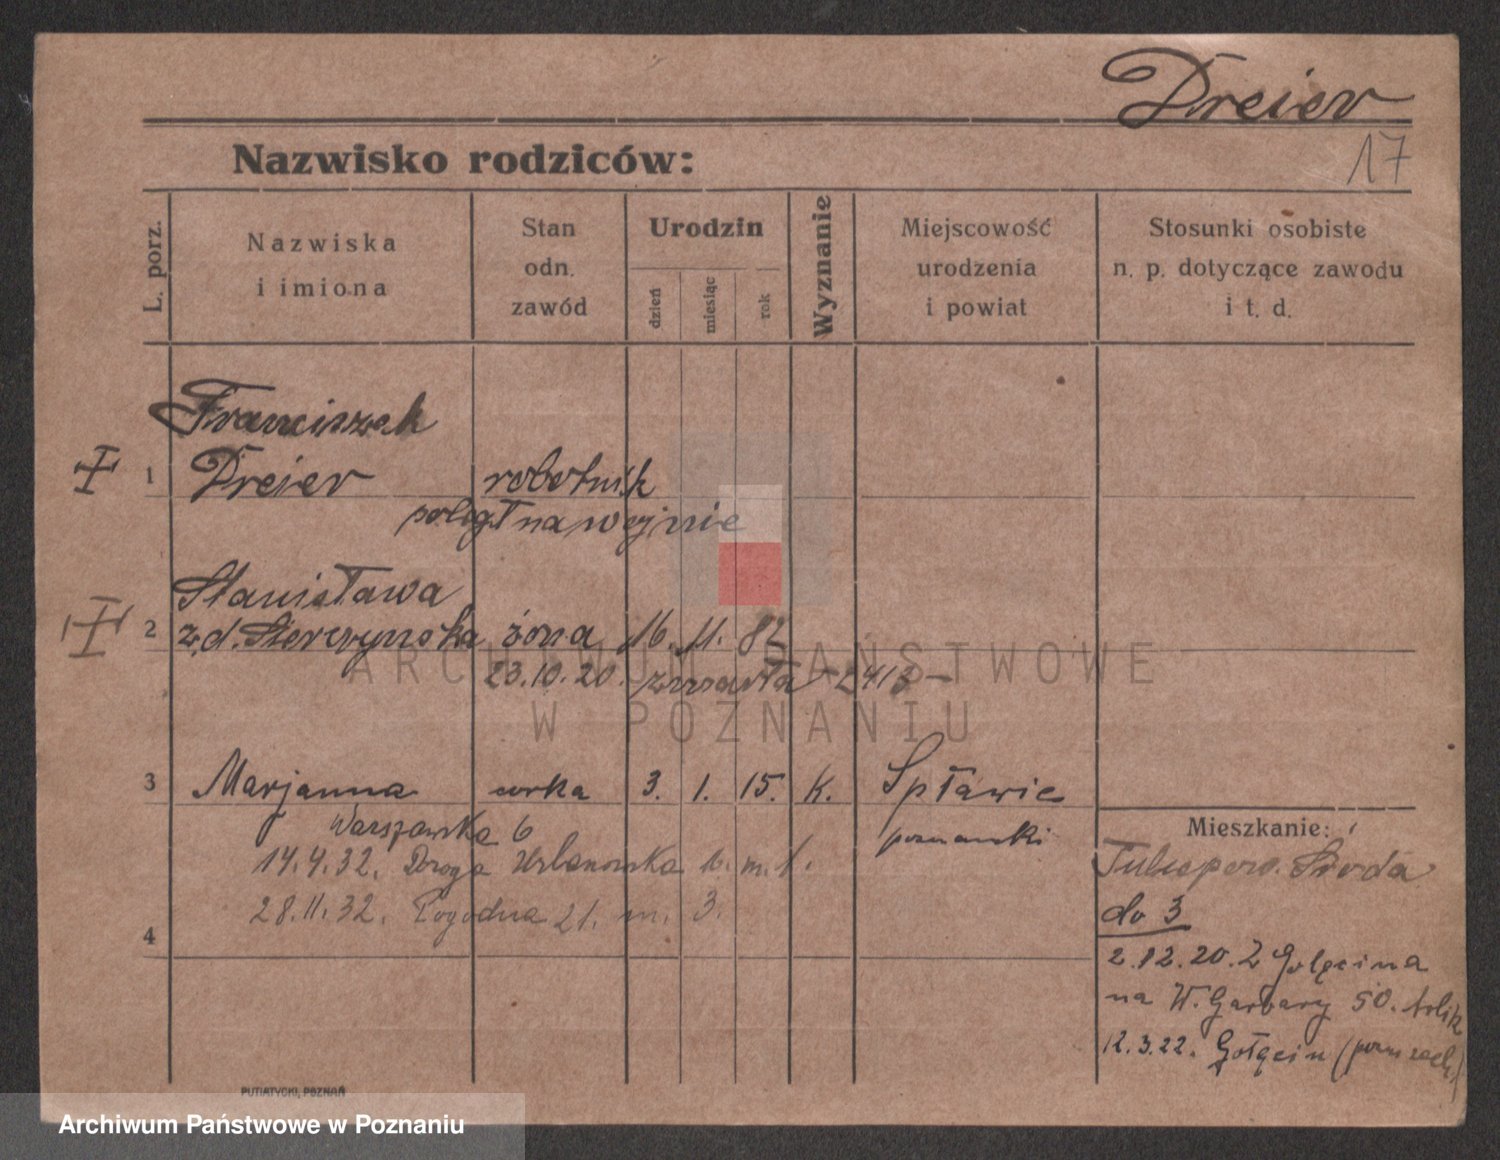 Dreier
17
Nazwisko rodziców:
L. porz.
Nazwiska
i imiona
Stan
odn.
zawód
Urodzin
dzień
miesiąc
rok
Wyznanie
Miejscowość
urodzenia
i powiat
Stosunki osobiste
n. p. dotyczące zawodu
i t. d.
Franciszek
1 Dreier robotnik
poległ na wojnie
Stanisława
2 z.d. żona 16. 11. 82
23.10.20. zmarła 2413 –
ARCHIWUM PAŃSTWOWE
W POZNANIU
3 Marjanna córka 3. 1. 15. K. Spławie
Warszawska 6 poznański
14.4.32. Droga Urbanowska m. 1.
28.11.32. Pogodna 21. m. 3.
4
Mieszkanie:
Środa
do 3
2.12.20. z Golęcina
na W. Garbary 50.
12.3.22. Gołęcin (pozn. zach.)
PUTIATYCKI, POZNAŃ
Archiwum Państwowe w Poznaniu